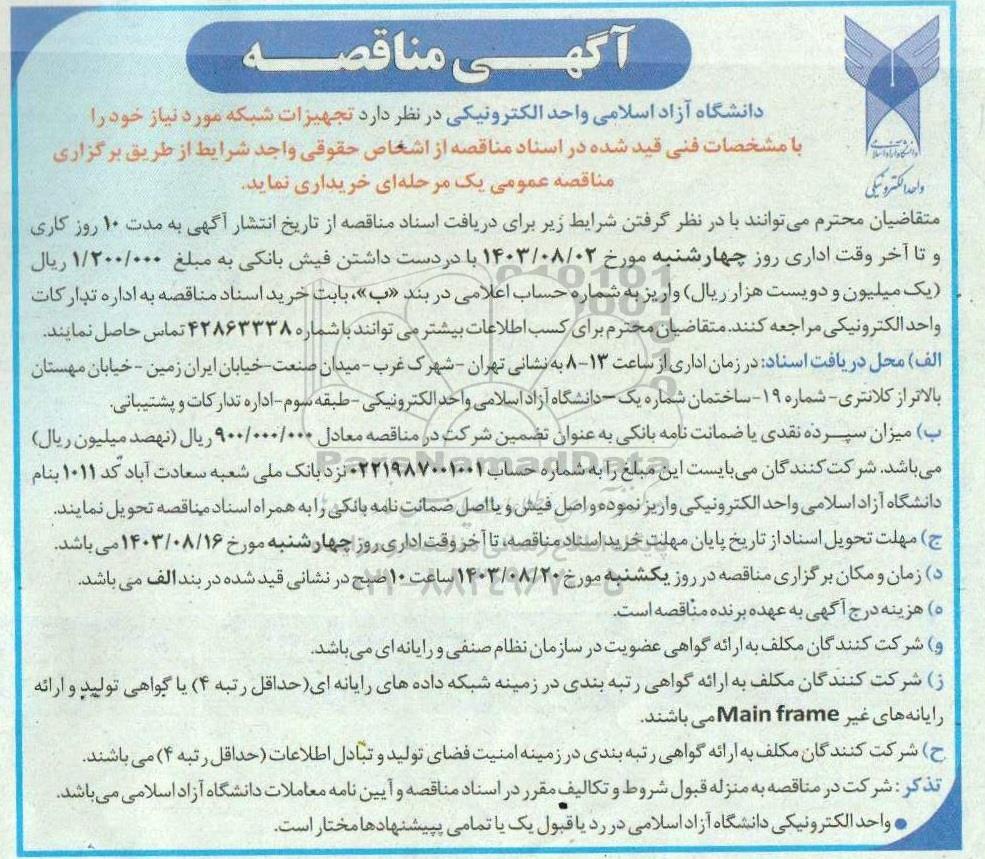 آگهی مناقصه
دانشگاه آزاد اسلامی
واحد الکترونیکی
دانشگاه آزاد اسلامی واحد الکترونیکی در نظر دارد تجهیزات شبکه مورد نیاز خود را
با مشخصات فنی قید شده در اسناد مناقصه از اشخاص حقوقی واجد شرایط از طریق برگزاری
مناقصه عمومی یک مرحله‌ای خریداری نماید.
متقاضیان محترم می‌توانند با در نظر گرفتن شرایط زیر برای دریافت اسناد مناقصه از تاریخ انتشار آگهی به مدت ۱۰ روز کاری
و تا آخر وقت اداری روز چهارشنبه مورخ ۱۴۰۳/۰۸/۰۲ با دردست داشتن فیش بانکی به مبلغ ۱/۲۰۰/۰۰۰ ریال
(یک میلیون و دویست هزار ریال) واریز به شماره حساب اعلامی در بند «ب»، بابت خرید اسناد مناقصه به اداره تدارکات
واحد الکترونیکی مراجعه کنند. متقاضیان محترم برای کسب اطلاعات بیشتر می توانند با شماره ۴۲۸۶۳۳۳۸ تماس حاصل نمایند.
الف) محل دریافت اسناد: در زمان اداری از ساعت ۱۳-۸ به نشانی تهران - شهرک غرب - میدان صنعت-خیابان ایران زمین - خیابان مهستان
بالاتر از کلانتری- شماره ۱۹-ساختمان شماره یک -دانشگاه آزاد اسلامی واحد الکترونیکی -طبقه سوم-اداره تدارکات و پشتیبانی.
ب) میزان سپرده نقدی یا ضمانت نامه بانکی به عنوان تضمین شرکت در مناقصه معادل ۹۰۰/۰۰۰/۰۰۰ ریال (نهصد میلیون ریال)
می‌باشد. شرکت‌کنندگان می‌بایست این مبلغ را به شماره حساب ۰۲۲۱۹۸۷۰۰۱۰۰۱ نزد بانک ملی شعبه سعادت آباد کد ۱۰۱۱ بنام
دانشگاه آزاد اسلامی واحد الکترونیکی واریز نموده و اصل فیش و یا اصل ضمانت نامه بانکی را به همراه اسناد مناقصه تحویل نمایند.
ج) مهلت تحویل اسناد از تاریخ پایان مهلت خرید اسناد مناقصه، تا آخر وقت اداری روز چهارشنبه مورخ ۱۴۰۳/۰۸/۱۶ می باشد.
د) زمان و مکان برگزاری مناقصه در روز یکشنبه مورخ ۱۴۰۳/۰۸/۲۰ ساعت ۱۰ صبح در نشانی قید شده در بند الف می باشد.
ه) هزینه درج آگهی به عهده برنده مناقصه است.
و) شرکت کنندگان مکلف به ارائه گواهی عضویت در سازمان نظام صنفی و رایانه ای می‌باشد.
ز) شرکت کنندگان مکلف به ارائه گواهی رتبه بندی در زمینه شبکه داده های رایانه ای(حداقل رتبه ۴) یا گواهی تولید و ارائه
رایانه‌های غیر Main frame می باشند.
ح) شرکت کنندگان مکلف به ارائه گواهی رتبه بندی در زمینه امنیت فضای تولید و تبادل اطلاعات (حداقل رتبه ۴) می باشند.
تذکر : شرکت در مناقصه به منزله قبول شروط و تکالیف مقرر در اسناد مناقصه و آیین نامه معاملات دانشگاه آزاد اسلامی می‌باشد.
● واحد الکترونیکی دانشگاه آزاد اسلامی در رد یا قبول یک یا تمامی پیپیشنهادها مختار است.
ParaNamadData